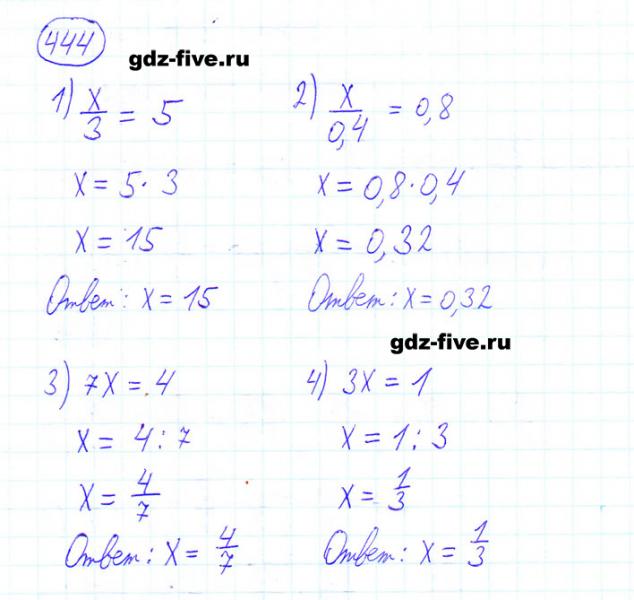 444
gdz-five.ru
1) x/3 = 5
x = 5 · 3
x = 15
Ответ: x = 15
2) x/0,4 = 0,8
x = 0,8 · 0,4
x = 0,32
Ответ: x = 0,32
gdz-five.ru
3) 7x = 4
x = 4 : 7
x = 4/7
Ответ: x = 4/7
4) 3x = 1
x = 1 : 3
x = 1/3
Ответ: x = 1/3